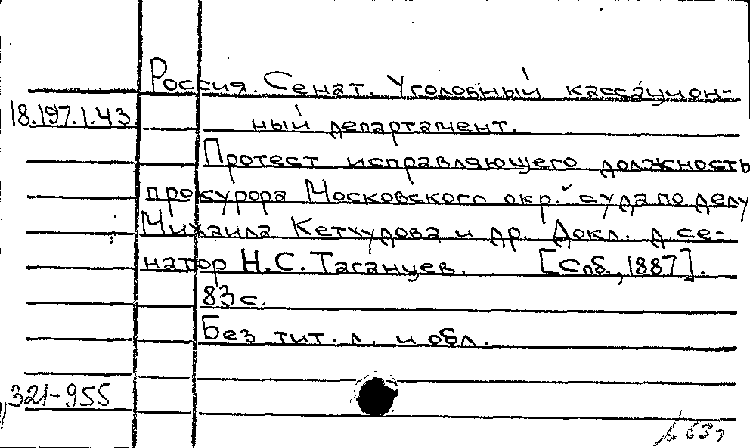 Россия. Сенат. Уголовный кассацион-
18.197.1.43
ный департамент.
Протест исправляющего должность
прокурора Московского окр. суда по делу
Михаила Кетхудова и др. Докл. д. се-
натор Н.С. Таганцев. [Спб., 1887].
83 с.
Без тит. л. и обл.
321-955